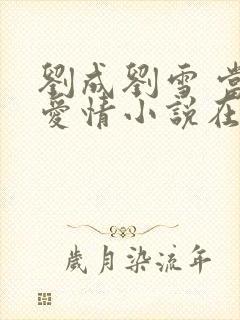 劉成劉雪 當
愛情小說在
歲月染流年